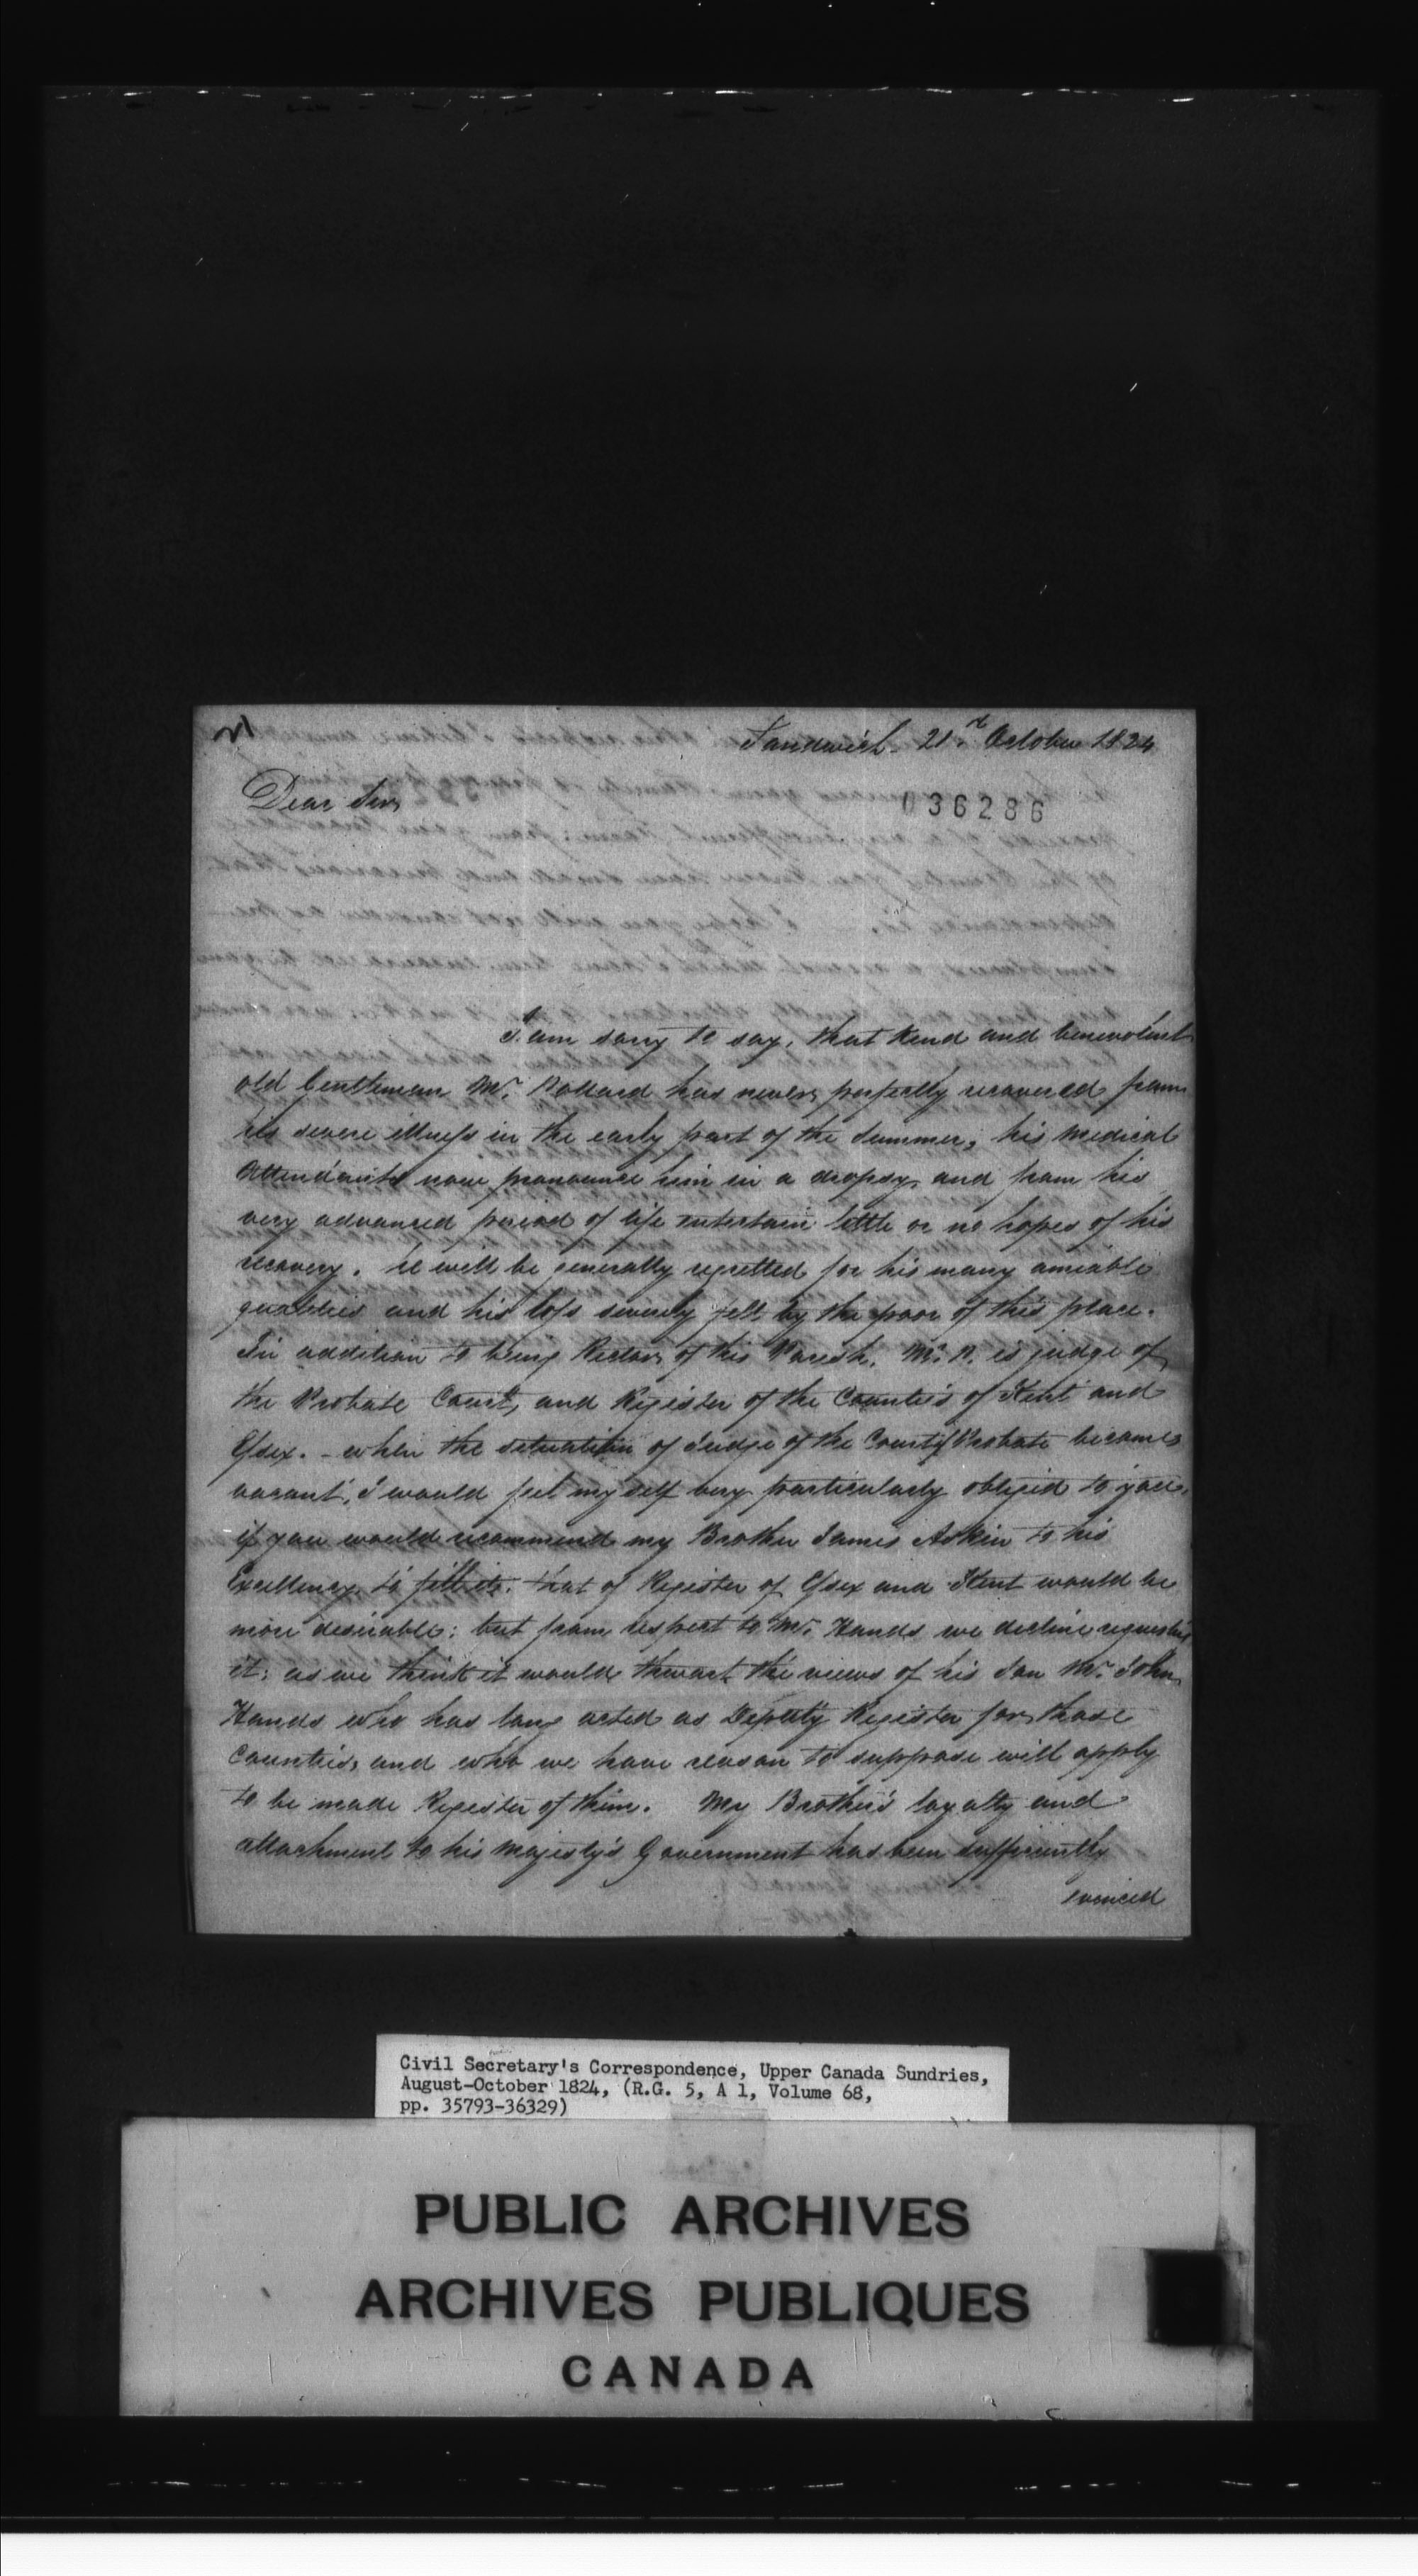 Sandwich 21st October 1824
Dear Sir,
036286
I am sorry to say, that kind and benevolent
old Gentleman Mr. Pollard has never perfectly recovered from
his severe illness in the early part of the Summer; his medical
Attendants now pronounce him in a dropsy, and from his
very advanced period of life entertain little or no hopes of his
recovery. He will be generally regretted for his many amiable
qualities and his loss severely felt by the poor of this place.
In addition to being Rector of this Parish, Mr. P. is judge of
the Probate Court, and Register of the Counties of Kent and
Essex. - when the situation of Judge of the County Probate becomes
vacant, I would feel myself very particularly obliged to you,
if you would recommend my Brother James Askin to his
Excellency to fill it. that of Register of Essex and Kent would be
more desirable: but from respect to Mr. Hands we decline requesting
it: as we think it would thwart the views of his Son Mr. John
Hands who has long acted as Deputy Register for those
Counties, and who we have reason to suppose will apply
to be made Register of them. My Brother's loyalty and
attachment to his Majesty's Government has been sufficiently
evinced
Civil Secretary's Correspondence, Upper Canada Sundries,
August-October 1824, (R.G. 5, A 1, Volume 68,
pp. 35793-36329)
PUBLIC ARCHIVES
ARCHIVES PUBLIQUES
CANADA